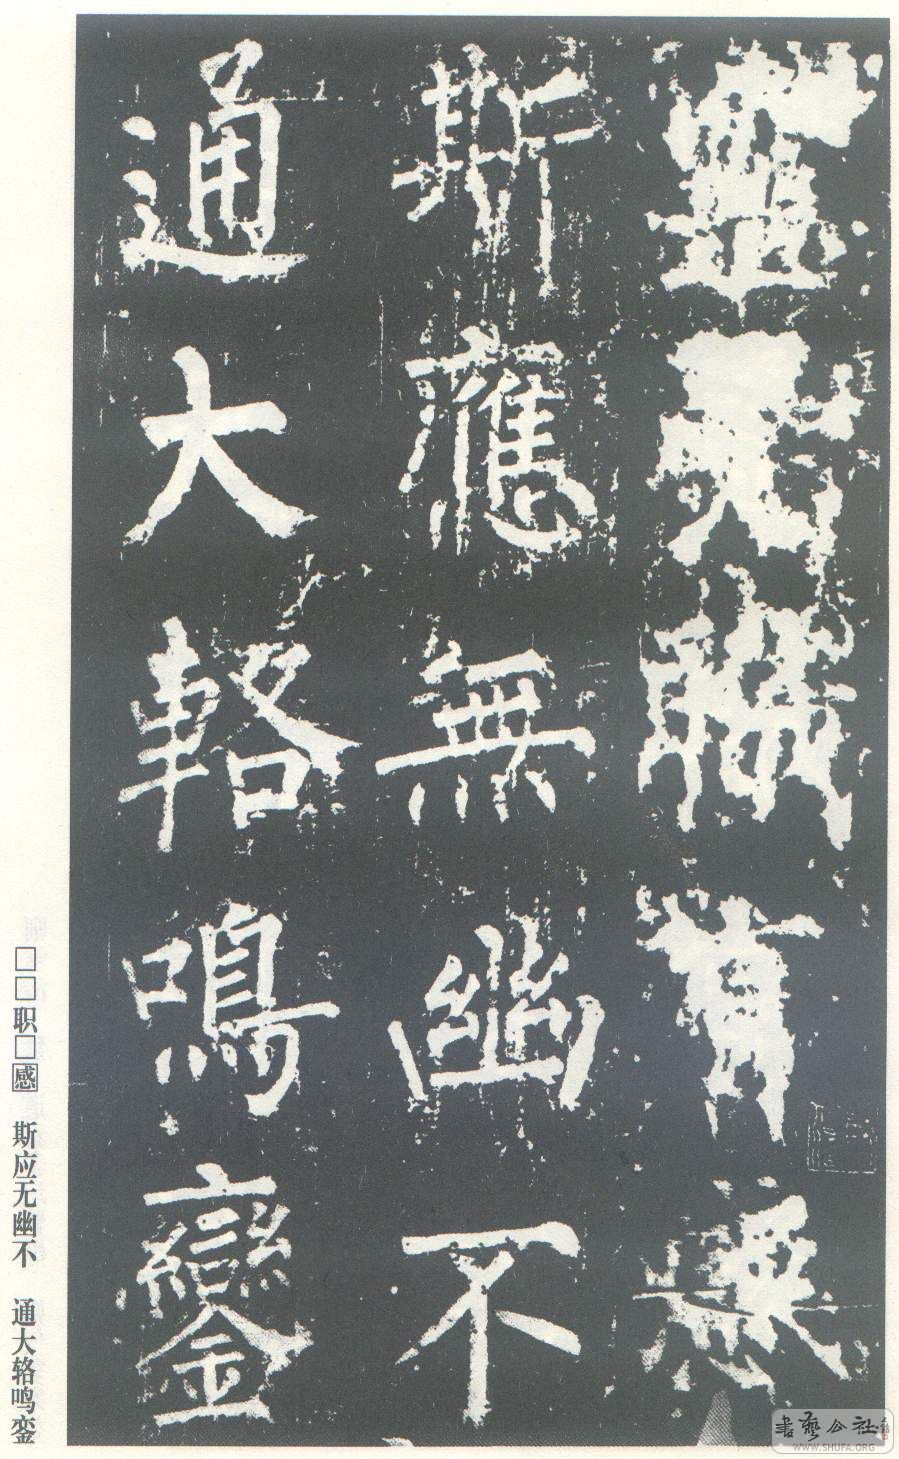 職
斯應無幽不
通大輅鳴鑾
□□职□感 斯应无幽不 通大辂鸣銮
書藝公社
WWW.SHUFA.ORG